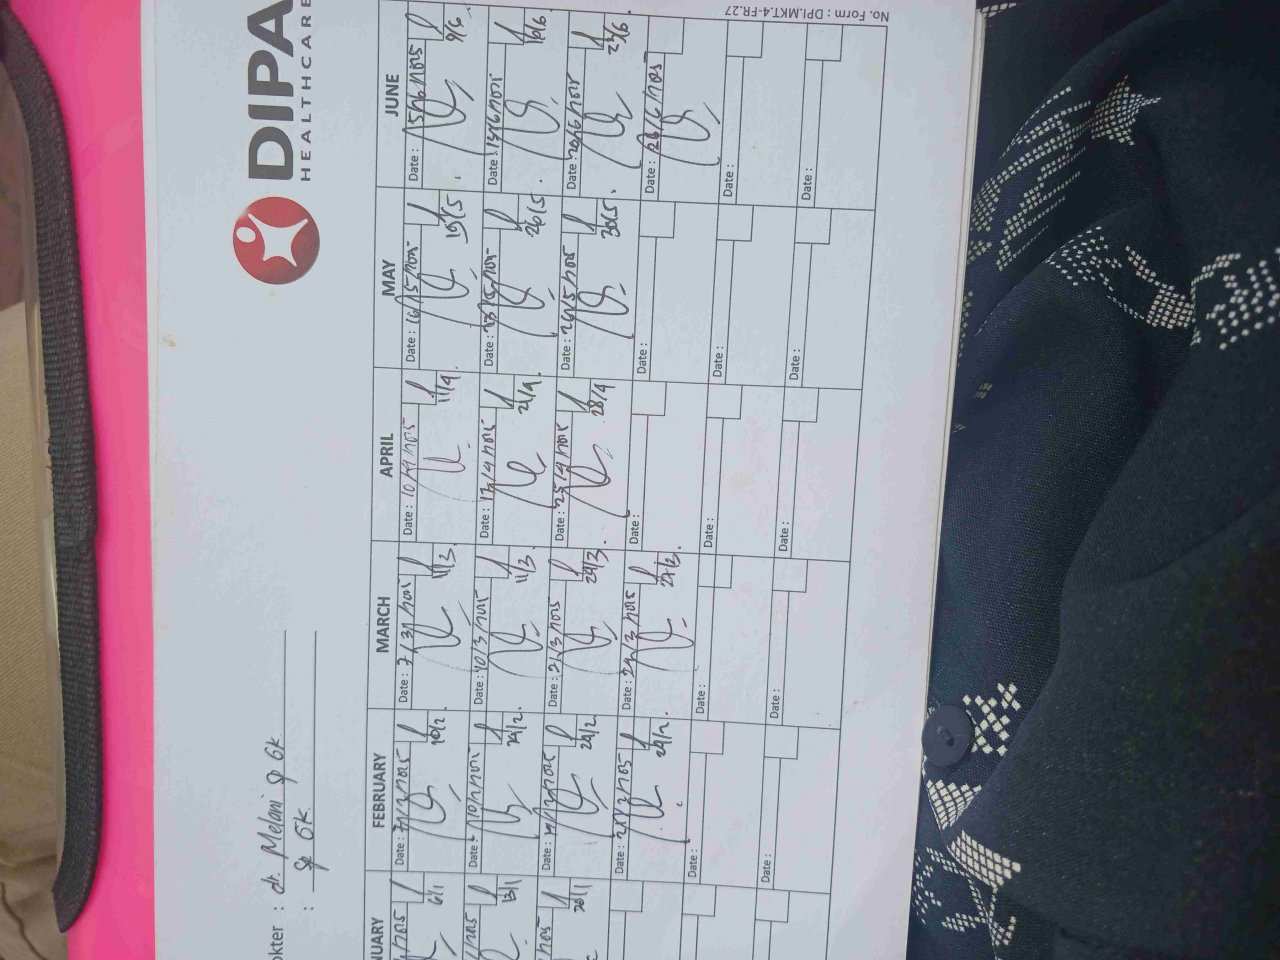 DIPA
HEALTHCARE
okter : dr. Melani Sp GK
: Sp GK
NUARY FEBRUARY MARCH APRIL MAY JUNE
Date : 7/2/2025 Date : 7/3/2025 Date : 10/4/2025 Date : 16/5/2025 Date : 5/6/2025
6/1 10/2. 11/3. 11/4. 19/5. 9/6.
Date : Date : 10/3/2025 Date : 17/4/2025 Date : 23/5/2025 Date : 13/6/2025
13/1 24/2. 11/3. 21/4. 26/5. 16/6.
Date : Date : 21/3/2025 Date : 25/4/2025 Date : 28/5/2025 Date : 20/6/2025
20/1 24/2 24/3. 28/4 30/5. 23/6
Date : Date : 24/3/2025 Date : Date : Date : 26/6/2025
24/2. 24/3.
Date : Date : Date : Date : Date :
Date : Date : Date : Date : Date :
No. Form : DPI.MKT.4-FR.27